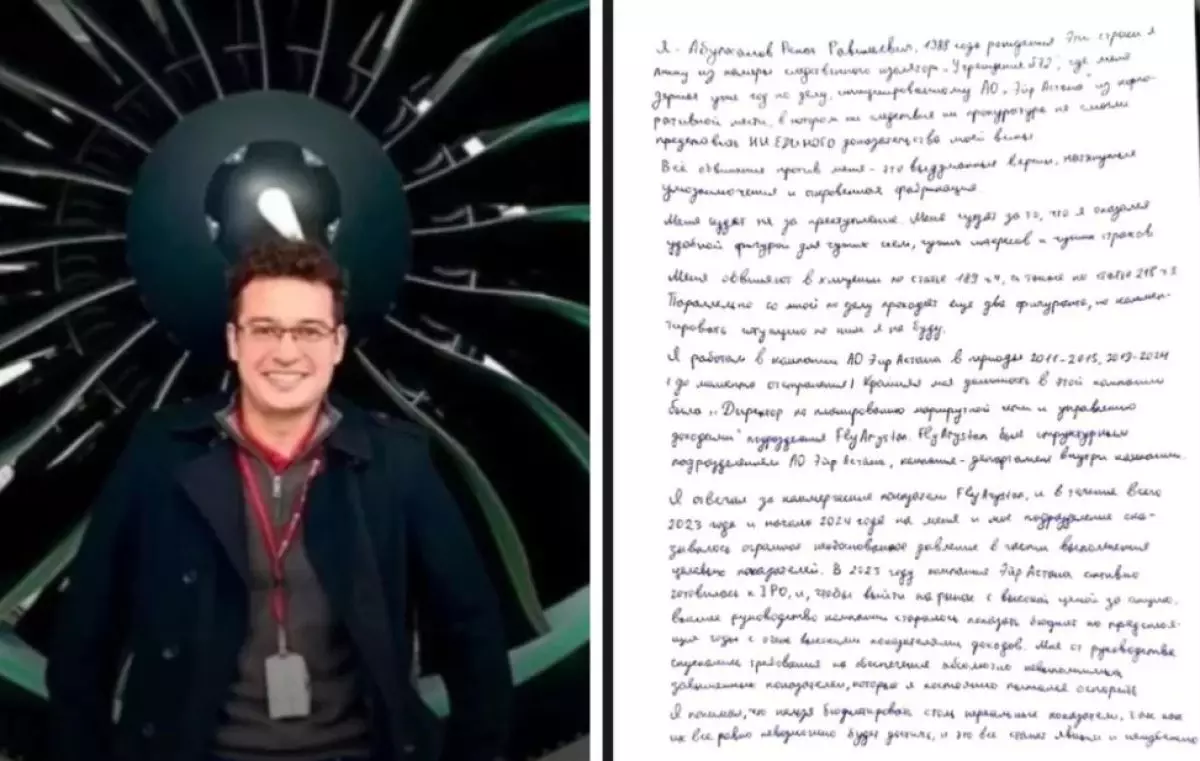 Я - Абулхасимов Ренат Равильевич, 1988 года рождения. Эти строки я
пишу из камеры следственного изолятора „Учреждения 572", где меня
держат уже год по делу, инициированному АО „Эйр Астана" из корпо-
ративной мести, в котором ни следствие ни прокуратура не смогли
представить НИ ЕДИНОГО доказательства моей вины
Все обвинения против меня - это выдуманные версии, натянутые
умозаключения и откровенная фабрикация.
Меня судят не за преступление. Меня судят за то, что я оказался
удобной фигурой для чужих схем, чужих интересов и чужих страхов
Меня обвиняют в хищении по статье 189 ч.4, а также по статье 218 ч.3
Параллельно со мной по делу проходят еще два фигуранта, но коммен-
тировать ситуацию по ним я не буду.
Я работал в компании АО Эйр Астана в периоды 2011-2015, 2019-2024
(до момента отстранения) Крайняя моя должность в этой компании
была „Директор по планированию маршрутной сети и управлению
доходами" подразделения FlyArystan. FlyArystan был структурным
подразделением АО Эйр Астана, компания - департамент внутри компании.
Я отвечал за коммерческие показатели FlyArystan, и в течение всего
2023 года и начало 2024 года на меня и мое подразделение ока-
зывалось огромное необоснованное давление в части выполнения
целевых показателей. В 2023 году компания Эйр Астана активно
готовилась к IPO, и, чтобы выйти на рынок с высокой ценой за акцию,
высшее руководство компании старалось показать бюджет на предстоя-
щие годы с очень высокими показателями доходов. Мне от руководства
спускались требования на обеспечение абсолютно невыполнимых
завышенных показателей, которые я постоянно пытался оспорить
Я понимал, что нельзя бюджетировать столь нереальные показатели, так как
их все равно невозможно будет достичь, и это все станет явным и неизбежно